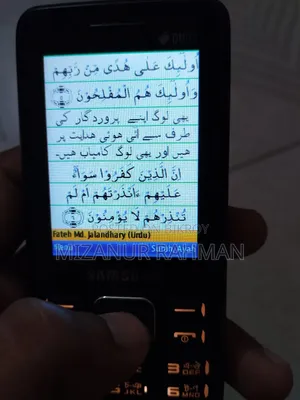 أُولَٰئِكَ عَلَىٰ هُدًى مِّن رَّبِّهِمْ
وَأُولَٰئِكَ هُمُ الْمُفْلِحُونَ
یہی لوگ اپنے پروردگار کی
طرف سے آئی ہوئی ہدایت پر
ہیں اور یہی لوگ کامیاب ہیں۔
إِنَّ الَّذِينَ كَفَرُوا سَوَاءٌ
عَلَيْهِمْ ءَأَنذَرْتَهُمْ أَمْ لَمْ
تُنذِرْهُمْ لَا يُؤْمِنُونَ
Fateh Md. Jalandhary (Urdu)
Menu Surah, Ayah
MIZANUR RAHMAN